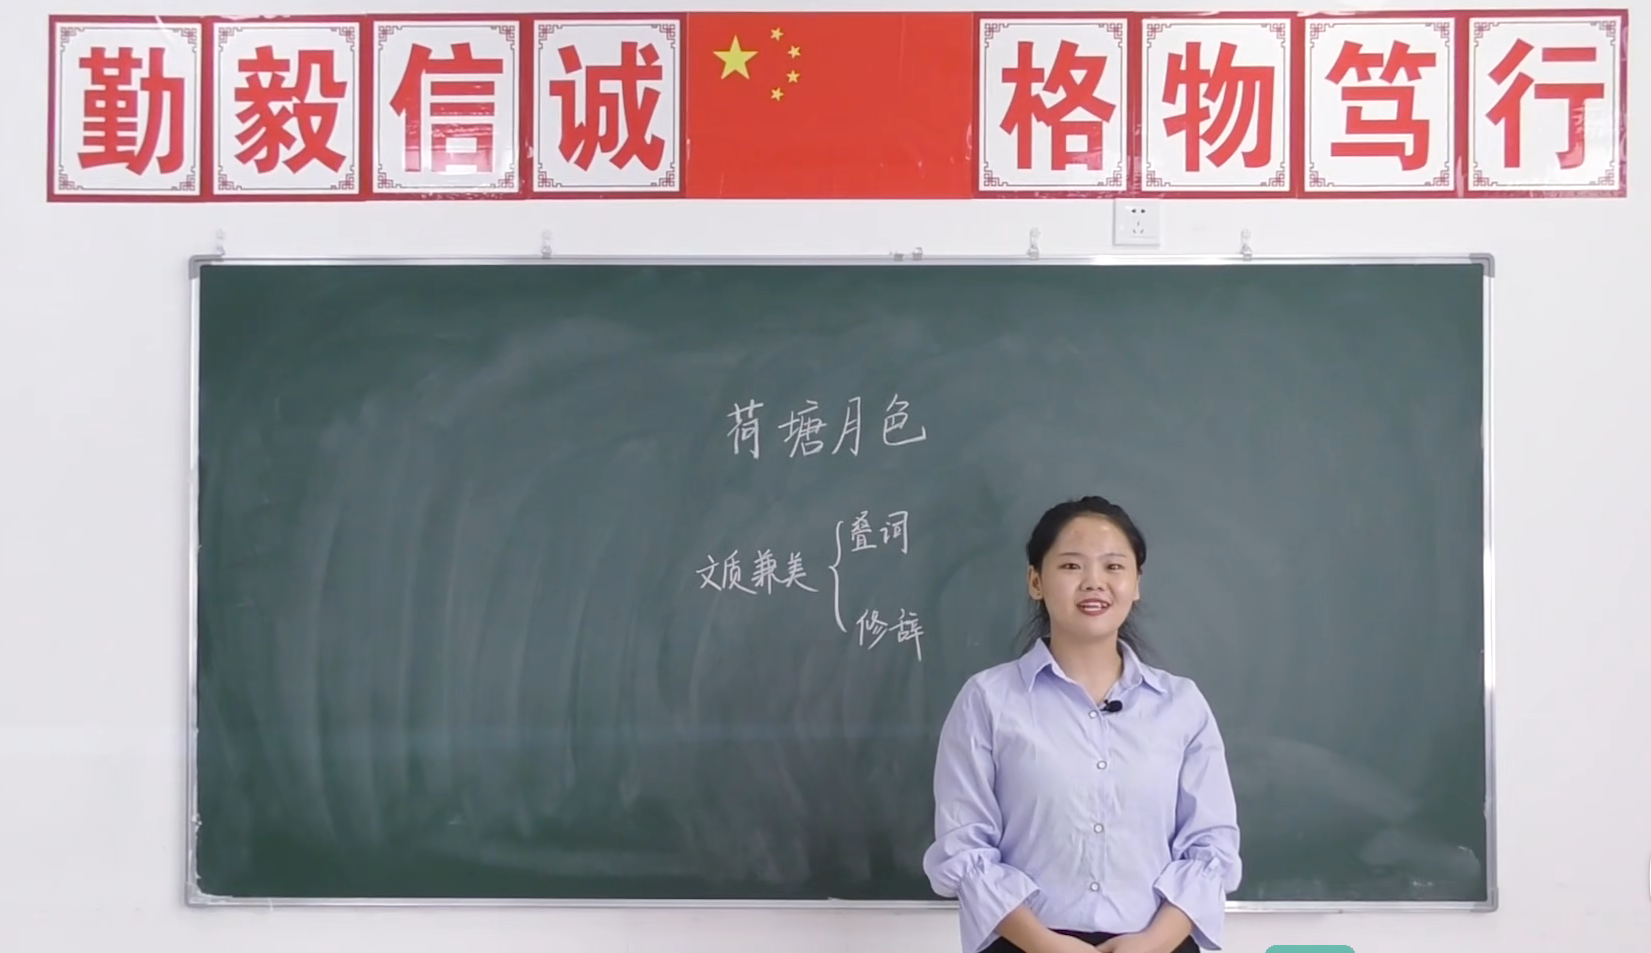 勤毅信诚 格物笃行
荷塘月色
叠词
文质兼美
修辞